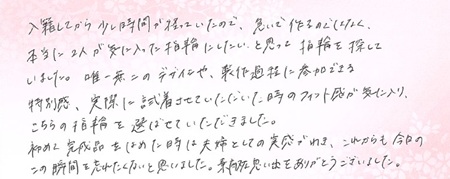 入籍してから少し時間が経っていたので、急いで作るのではなく、
本当に2人が気に入った指輪にしたいと思って指輪を探して
いました。唯一無二のデザインや、製作過程に参加できる
特別感、実際に試着させていただいた時のフィット感が気に入り、
こちらの指輪を選ばせていただきました。
初めて完成品をはめた時は夫婦としての実感がわき、これからも今日の
この瞬間を忘れたくないと思いました。素敵な思い出をありがとうございました。